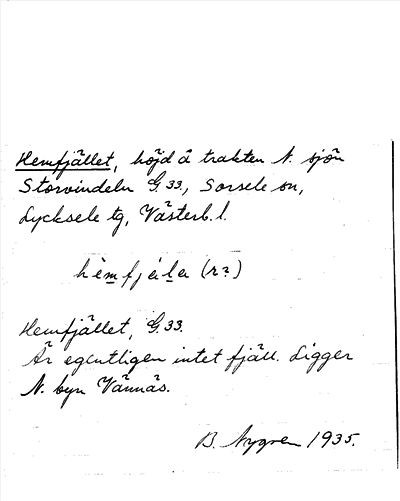 Hemfjället, höjd å trakten N. sjön
Storvindeln G.33., Sorsele sn,
Lycksele tg, Västerb. l.
hèmfjála (r?)
Hemfjället, G.33.
Är egentligen intet fjäll. Ligger
N. byn Vännäs.
B. Nygren 1935.